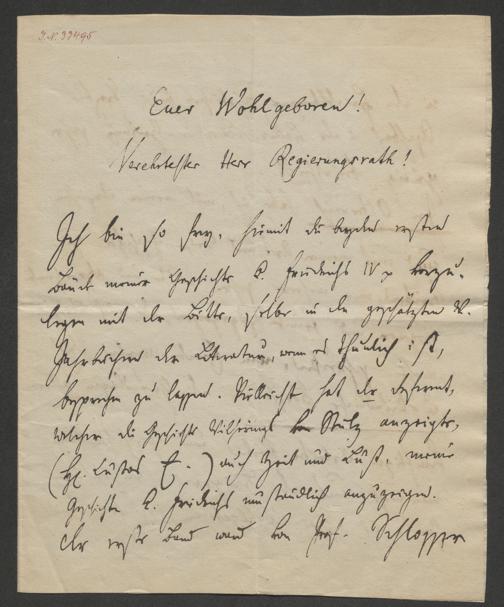 I.N. 33495
Euer Wohlgeboren!
Verehrtester Herr Regierungsrath!
Ich bin so frey, hiemit die beyden ersten
Bände meiner Geschichte K. Friedrichs IV vorzu-
legen mit der Bitte, selbe in den geschätzten
Jahrbüchern der Literatur, wenn es thunlich ist,
besprechen zu lassen. Vielleicht hat der Referent,
welcher die Geschichte von Stülz anzeigte,
auch Zeit und Lust, meine
Geschichte K. Friedrichs umständlich anzuzeigen.
Der erste Band ward von Prof. Schlosser